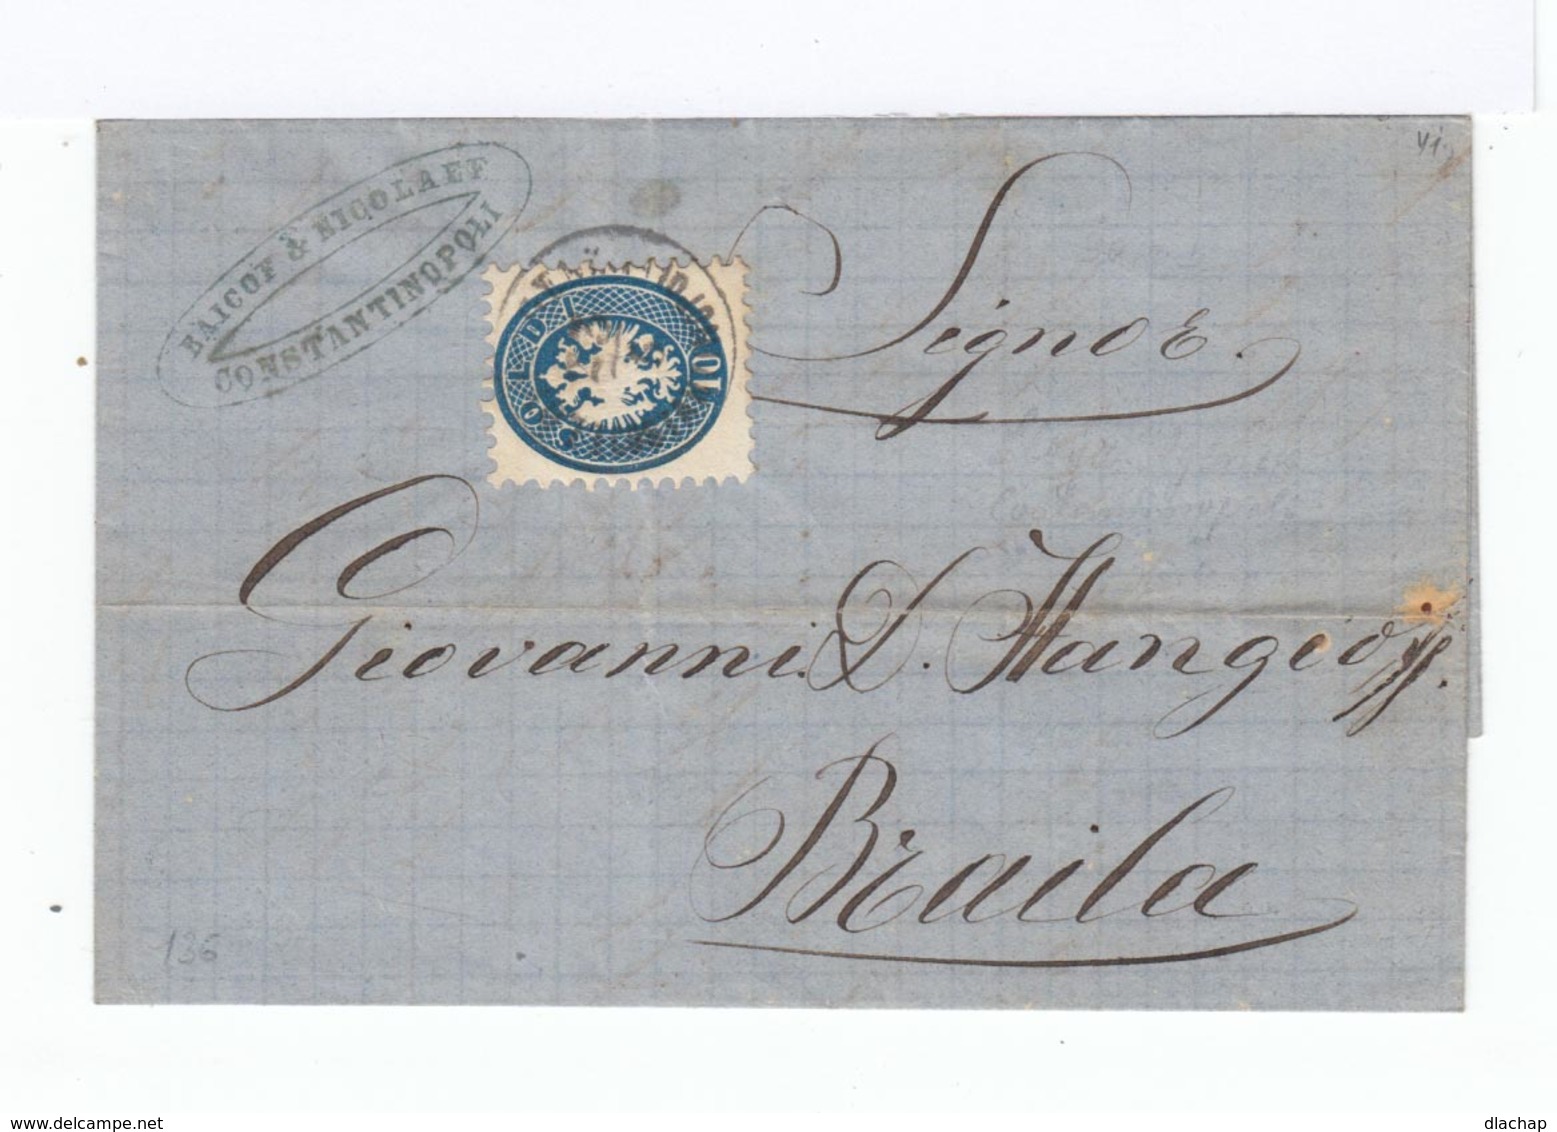 BAICOF & NICOLAEF
CONSTANTINOPOLI
10 SOLDI
Signor.
Giovanni. D. Hangioff.
Braila
136
41.
www.delcampe.net
dlachap